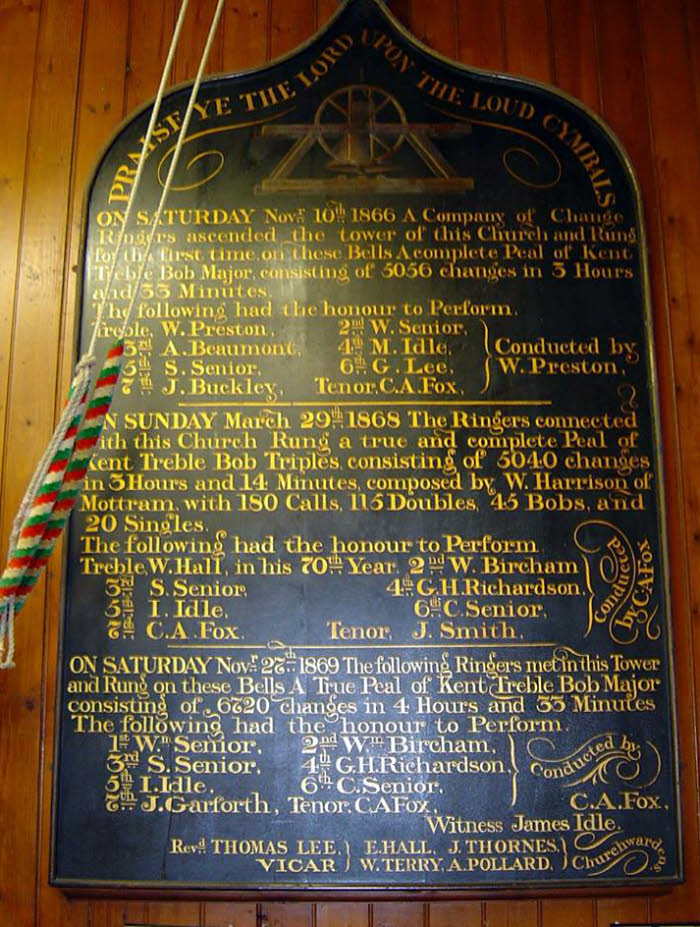 PRAISE YE THE LORD UPON THE LOUD CYMBALS
ON SATURDAY Novr. 10th 1866 A Company of Change
Ringers ascended the tower of this Church and Rung
for the first time on these Bells A complete Peal of Kent
Treble Bob Major, consisting of 5056 changes in 3 Hours
and 33 Minutes.
The following had the honour to Perform.
Treble, W. Preston, 2nd W. Senior,
3rd A. Beaumont, 4th M. Idle, Conducted by
5th S. Senior, 6th G. Lee, W. Preston,
7th J. Buckley, Tenor, C.A. Fox,
ON SUNDAY March 29th 1868 The Ringers connected
with this Church Rung a true and complete Peal of
Kent Treble Bob Triples, consisting of 5040 changes
in 3 Hours and 14 Minutes, composed by W. Harrison of
Mottram, with 180 Calls, 115 Doubles, 45 Bobs, and
20 Singles.
The following had the honour to Perform
Treble, W. Hall, in his 70th Year. 2nd W. Bircham
3rd S. Senior, 4th G.H. Richardson, Conducted
5th I. Idle, 6th C. Senior, by C.A Fox
7th C.A. Fox. Tenor, J. Smith,
ON SATURDAY Novr. 27th 1869 The following Ringers met in this Tower
and Rung on these Bells A True Peal of Kent Treble Bob Major
consisting of 6720 changes in 4 Hours and 33 Minutes
The following had the honour to Perform.
1st Wm Senior, 2nd Wm Bircham,
3rd S. Senior, 4th G.H. Richardson, Conducted by
5th I. Idle, 6th C. Senior,
7th J. Garforth, Tenor, C.A Fox, C.A. Fox,
Witness James Idle.
Revd. THOMAS LEE, E. HALL, J. THORNES,
VICAR W. TERRY, A. POLLARD, Churchwardens